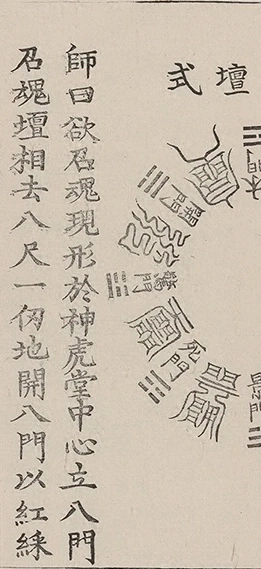 壇式
休門
開門
驚門
死門
景門
師曰欲召魂現形於神虎堂中心立八門
召魂壇相去八尺一仞地開八門以紅綵